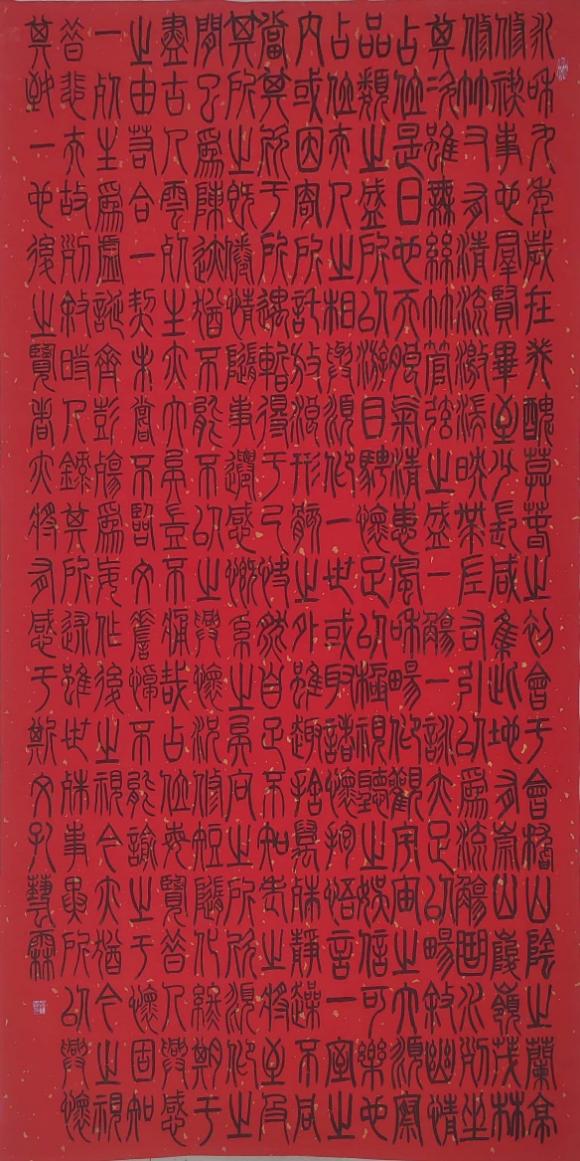 永和九年歲在癸醜暮春之初會于會稽山陰之蘭亭
修禊事也羣賢畢至少長咸集此地有崇山峻嶺茂林
修竹又有清流激湍映帶左右引以爲流觴曲水列坐
其次雖無絲竹管弦之盛一觴一詠亦足以暢敘幽情
占位是日也天朗氣清惠風和暢仰觀宇宙之大俯察
品類之盛所以游目騁懷足以極視聽之娛信可樂也
占位夫人之相與俯仰一世或取諸懷抱悟言一室之
内或因寄所託放浪形骸之外雖趣捨萬殊靜躁不同
當其欣于所遇暫得于己快然自足不知老之將至及
其所之既倦情隨事遷感慨系之矣向之所欣俯仰之
間已爲陳迹猶不能不以之興懷況修短隨化終期于
盡古人雲死生亦大矣豈不痛哉占位每覽昔人興感
之由若合一契未嘗不臨文嗟悼不能諭之于懷固知
一死生爲虛誕齊彭殤爲妄作後之視今亦猶今之視
昔悲夫故列敘時人錄其所述雖世殊事異所以興懷
其致一也後之覽者亦將有感于斯文孔藝霖